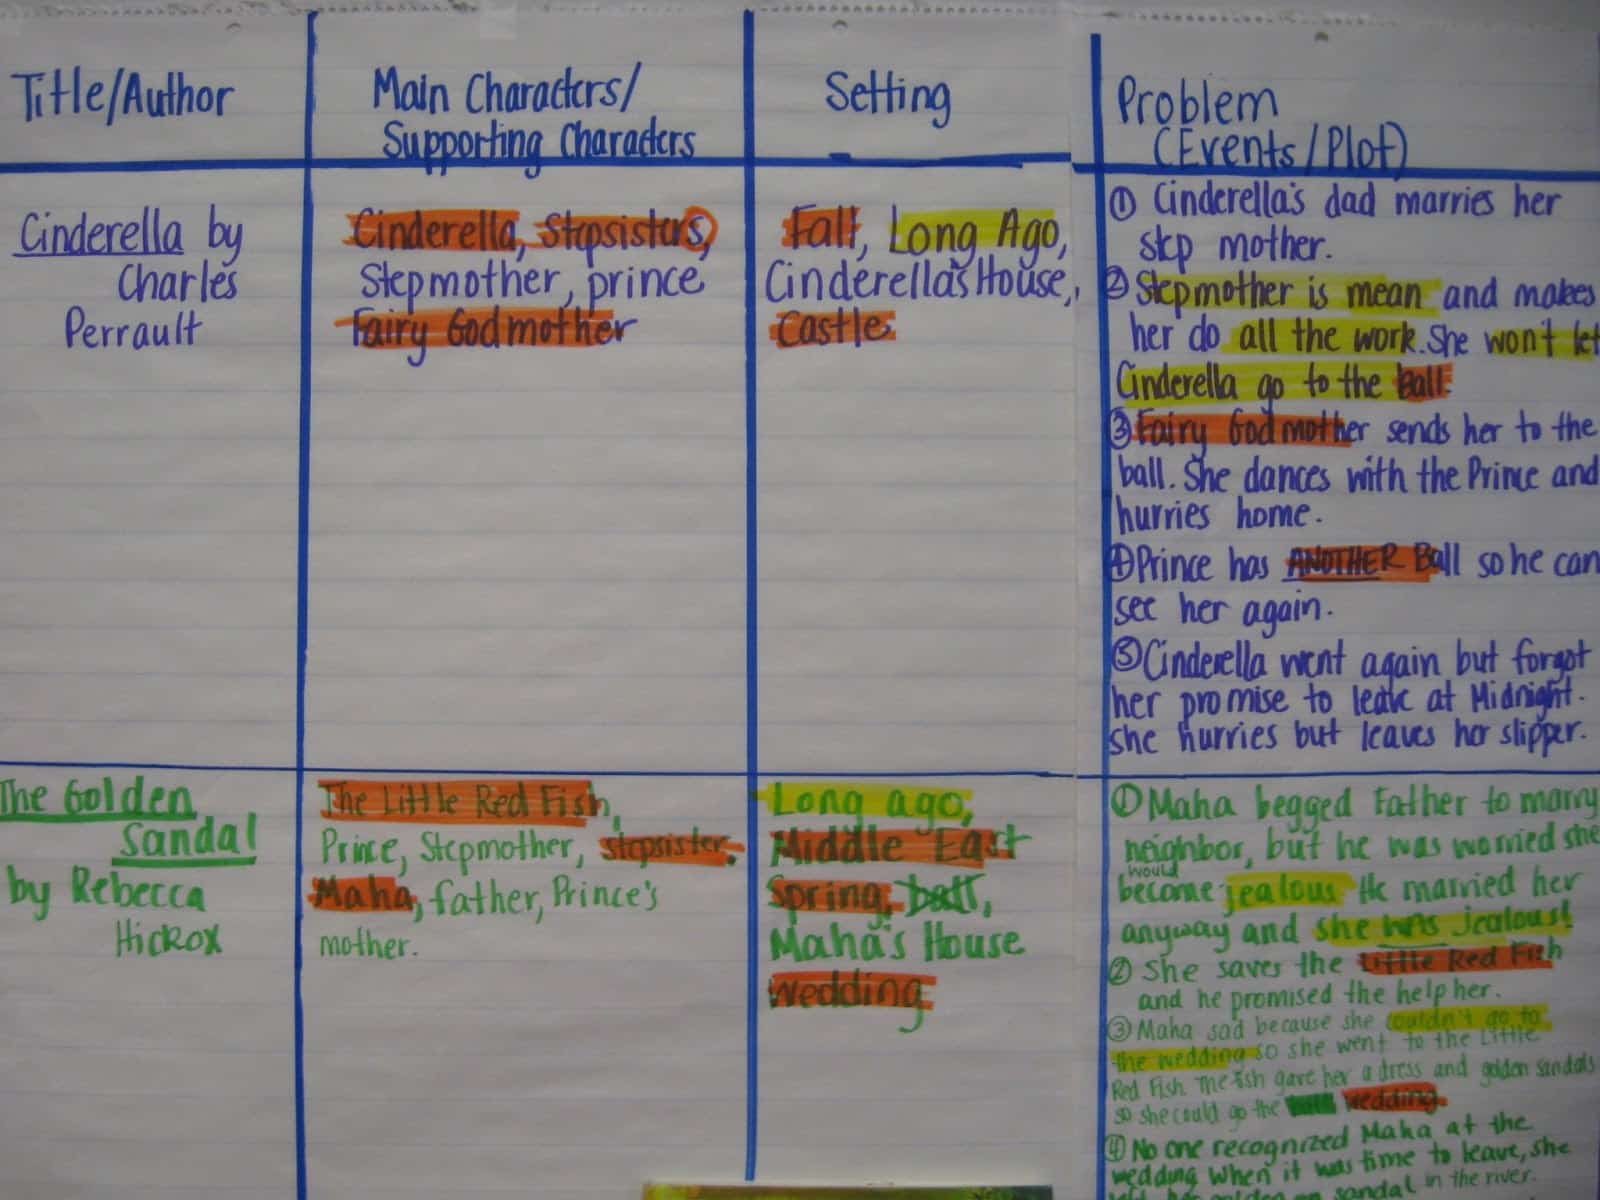 Title/Author
Main Characters/
Supporting Characters
Setting
Problem
(Events/Plot)
Cinderella by
Charles
Perrault
Cinderella, Stepsisters,
Stepmother, prince
Fairy Godmother
Fall, Long Ago,
Cinderella's House,
Castle
① Cinderella's dad marries her
step mother.
② Stepmother is mean and makes
her do all the work. She won't let
Cinderella go to the ball.
③ Fairy Godmother sends her to the
ball. She dances with the Prince and
hurries home.
④ Prince has ANOTHER Ball so he can
see her again.
⑤ Cinderella went again but forgot
her promise to leave at Midnight.
She hurries but leaves her slipper.
The Golden
Sandal
by Rebecca
Hickox
The Little Red Fish,
Prince, Stepmother, stepsister,
Maha, father, Prince's
mother.
Long ago,
Middle East
Spring, ball,
Maha's House
Wedding
① Maha begged Father to marry
neighbor, but he was worried she
would
become jealous He married her
anyway and she was jealous!
② She saves the Little Red Fish
and he promised the help her.
③ Maha sad because she couldn't go to
the wedding so she went to the Little
Red Fish. The fish gave her a dress and golden sandals
so she could go the wedding.
④ No one recognized Maha at the
wedding when it was time to leave, she
left her golden sandal in the river.